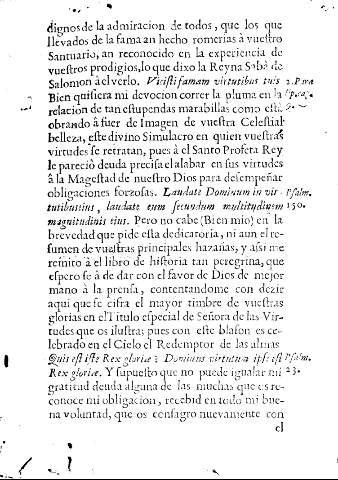 dignos de la admiracion de todos, que los que
llevados de la fama an hecho romerias à vuestro
Santuario, an reconocido en la experiencia de
vuestros prodigios, lo que dixo la Reyna Sabà de
Salomon à el verlo. Vicisti famam virtutibus tuis
Bien quisiera mi devocion correr la pluma en la
relacion de tan estupendas marabillas como està
obrando à fuer de Imagen de vuestra Celestial
belleza, este divino Simulacro en quien vuestras
virtudes se retratan, pues à el Santo Profeta Rey
le pareciò deuda precisa el alabar en sus virtudes
à la Magestad de nuestro Dios para desempeñar
obligaciones forzosas. Laudate Dominum in vir- Psalm.
tutibus eius, laudate eum secundum multitudinem 150.
magnitudinis eius. Pero no cabe (Bien mio) en la
brevedad que pide esta dedicatoria, ni aun el re-
sumen de vuestras principales hazañas, y assi me
remito à el libro de historia tan peregrina, que
espero se à de dar con el favor de Dios de mejor
mano à la prensa, contentandome con dezir
aqui que se cifra el mayor timbre de vuestras
glorias en el Titulo especial de Señora de las Vir-
tudes que os ilustra; pues con este blason es ce-
lebrado en el Cielo el Redemptor de las almas
Quis est iste Rex gloriæ? Dominus virtutum ipse est Psalm.
Rex gloriæ. Y supuesto que no puede igualar mi 23.
gratitud deuda alguna de las muchas que os re-
conoce mi obligacion, recebid en todo mi bue-
na voluntad, que os consagro nuevamente con
el